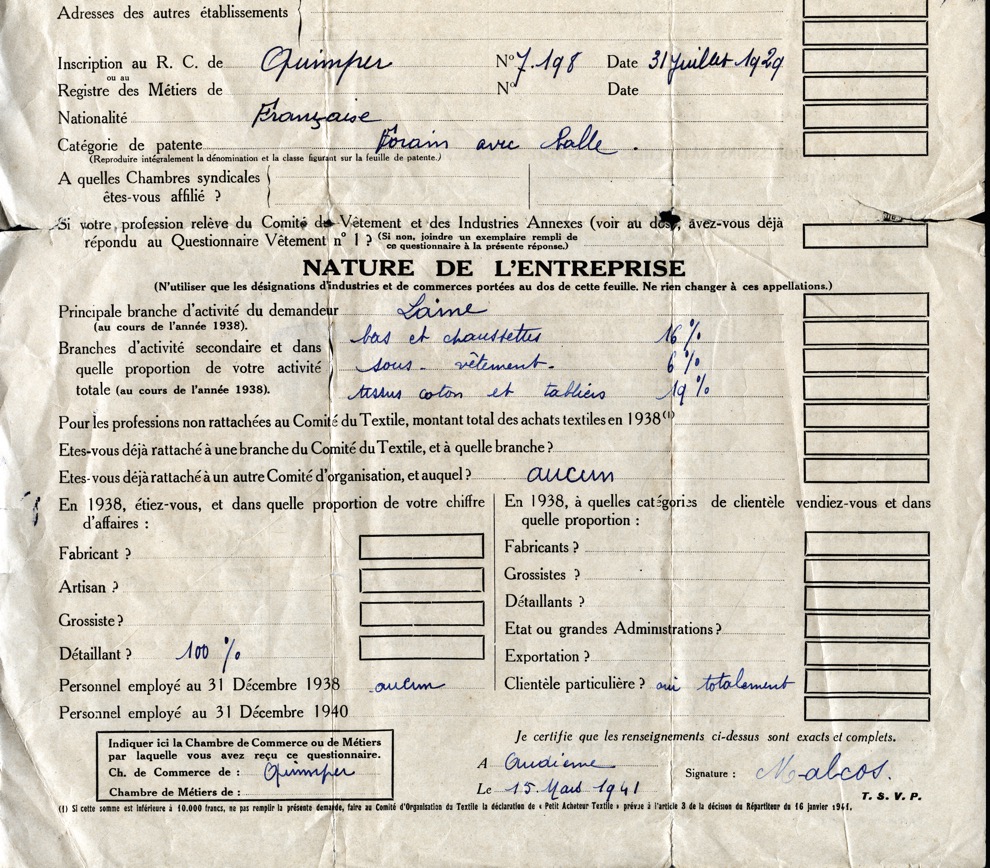 Adresses des autres établissements
Inscription au R. C. de Quimper N° 7.198 Date 31 Juillet 1929
ou au
Registre des Métiers de N° Date
Nationalité Française
Catégorie de patente Forain avec balle.
(Reproduire intégralement la dénomination et la classe figurant sur la feuille de patente.)
A quelles Chambres syndicales
êtes-vous affilié ?
Si votre profession relève du Comité du Vêtement et des Industries Annexes (voir au dos), avez-vous déjà
répondu au Questionnaire Vêtement n° 1 ? (Si non, joindre un exemplaire rempli de
ce questionnaire à la présente réponse.)
NATURE DE L'ENTREPRISE
(N'utiliser que les désignations d'industries et de commerces portées au dos de cette feuille. Ne rien changer à ces appellations.)
Principale branche d'activité du demandeur Laine
(au cours de l'année 1938).
bas et chaussettes 16 %
Branches d'activité secondaire et dans
quelle proportion de votre activité sous-vêtement- 6 %
totale (au cours de l'année 1938). tissus coton et tabliers 19 %
Pour les professions non rattachées au Comité du Textile, montant total des achats textiles en 1938 (1)
Etes-vous déjà rattaché à une branche du Comité du Textile, et à quelle branche ?
Etes-vous déjà rattaché à un autre Comité d'organisation, et auquel ? aucun
En 1938, étiez-vous, et dans quelle proportion de votre chiffre
d'affaires :
Fabricant ?
Artisan ?
Grossiste ?
Détaillant ? 100 %
Personnel employé au 31 Décembre 1938 aucun
Personnel employé au 31 Décembre 1940
En 1938, à quelles catégories de clientèle vendiez-vous et dans
quelle proportion :
Fabricants ?
Grossistes ?
Détaillants ?
Etat ou grandes Administrations ?
Exportation ?
Clientèle particulière ? oui totalement
Indiquer ici la Chambre de Commerce ou de Métiers
par laquelle vous avez reçu ce questionnaire.
Ch. de Commerce de : Quimper
Chambre de Métiers de :
Je certifie que les renseignements ci-dessus sont exacts et complets.
A Audierne
Signature : Malcos.
Le 15 Mars 1941
T. S. V. P.
(1) Si cette somme est inférieure à 10.000 francs, ne pas remplir la présente demande, faire au Comité d'Organisation du Textile la déclaration de « Petit Acheteur Textile » prévue à l'article 3 de la décision du Répartiteur du 16 janvier 1941.